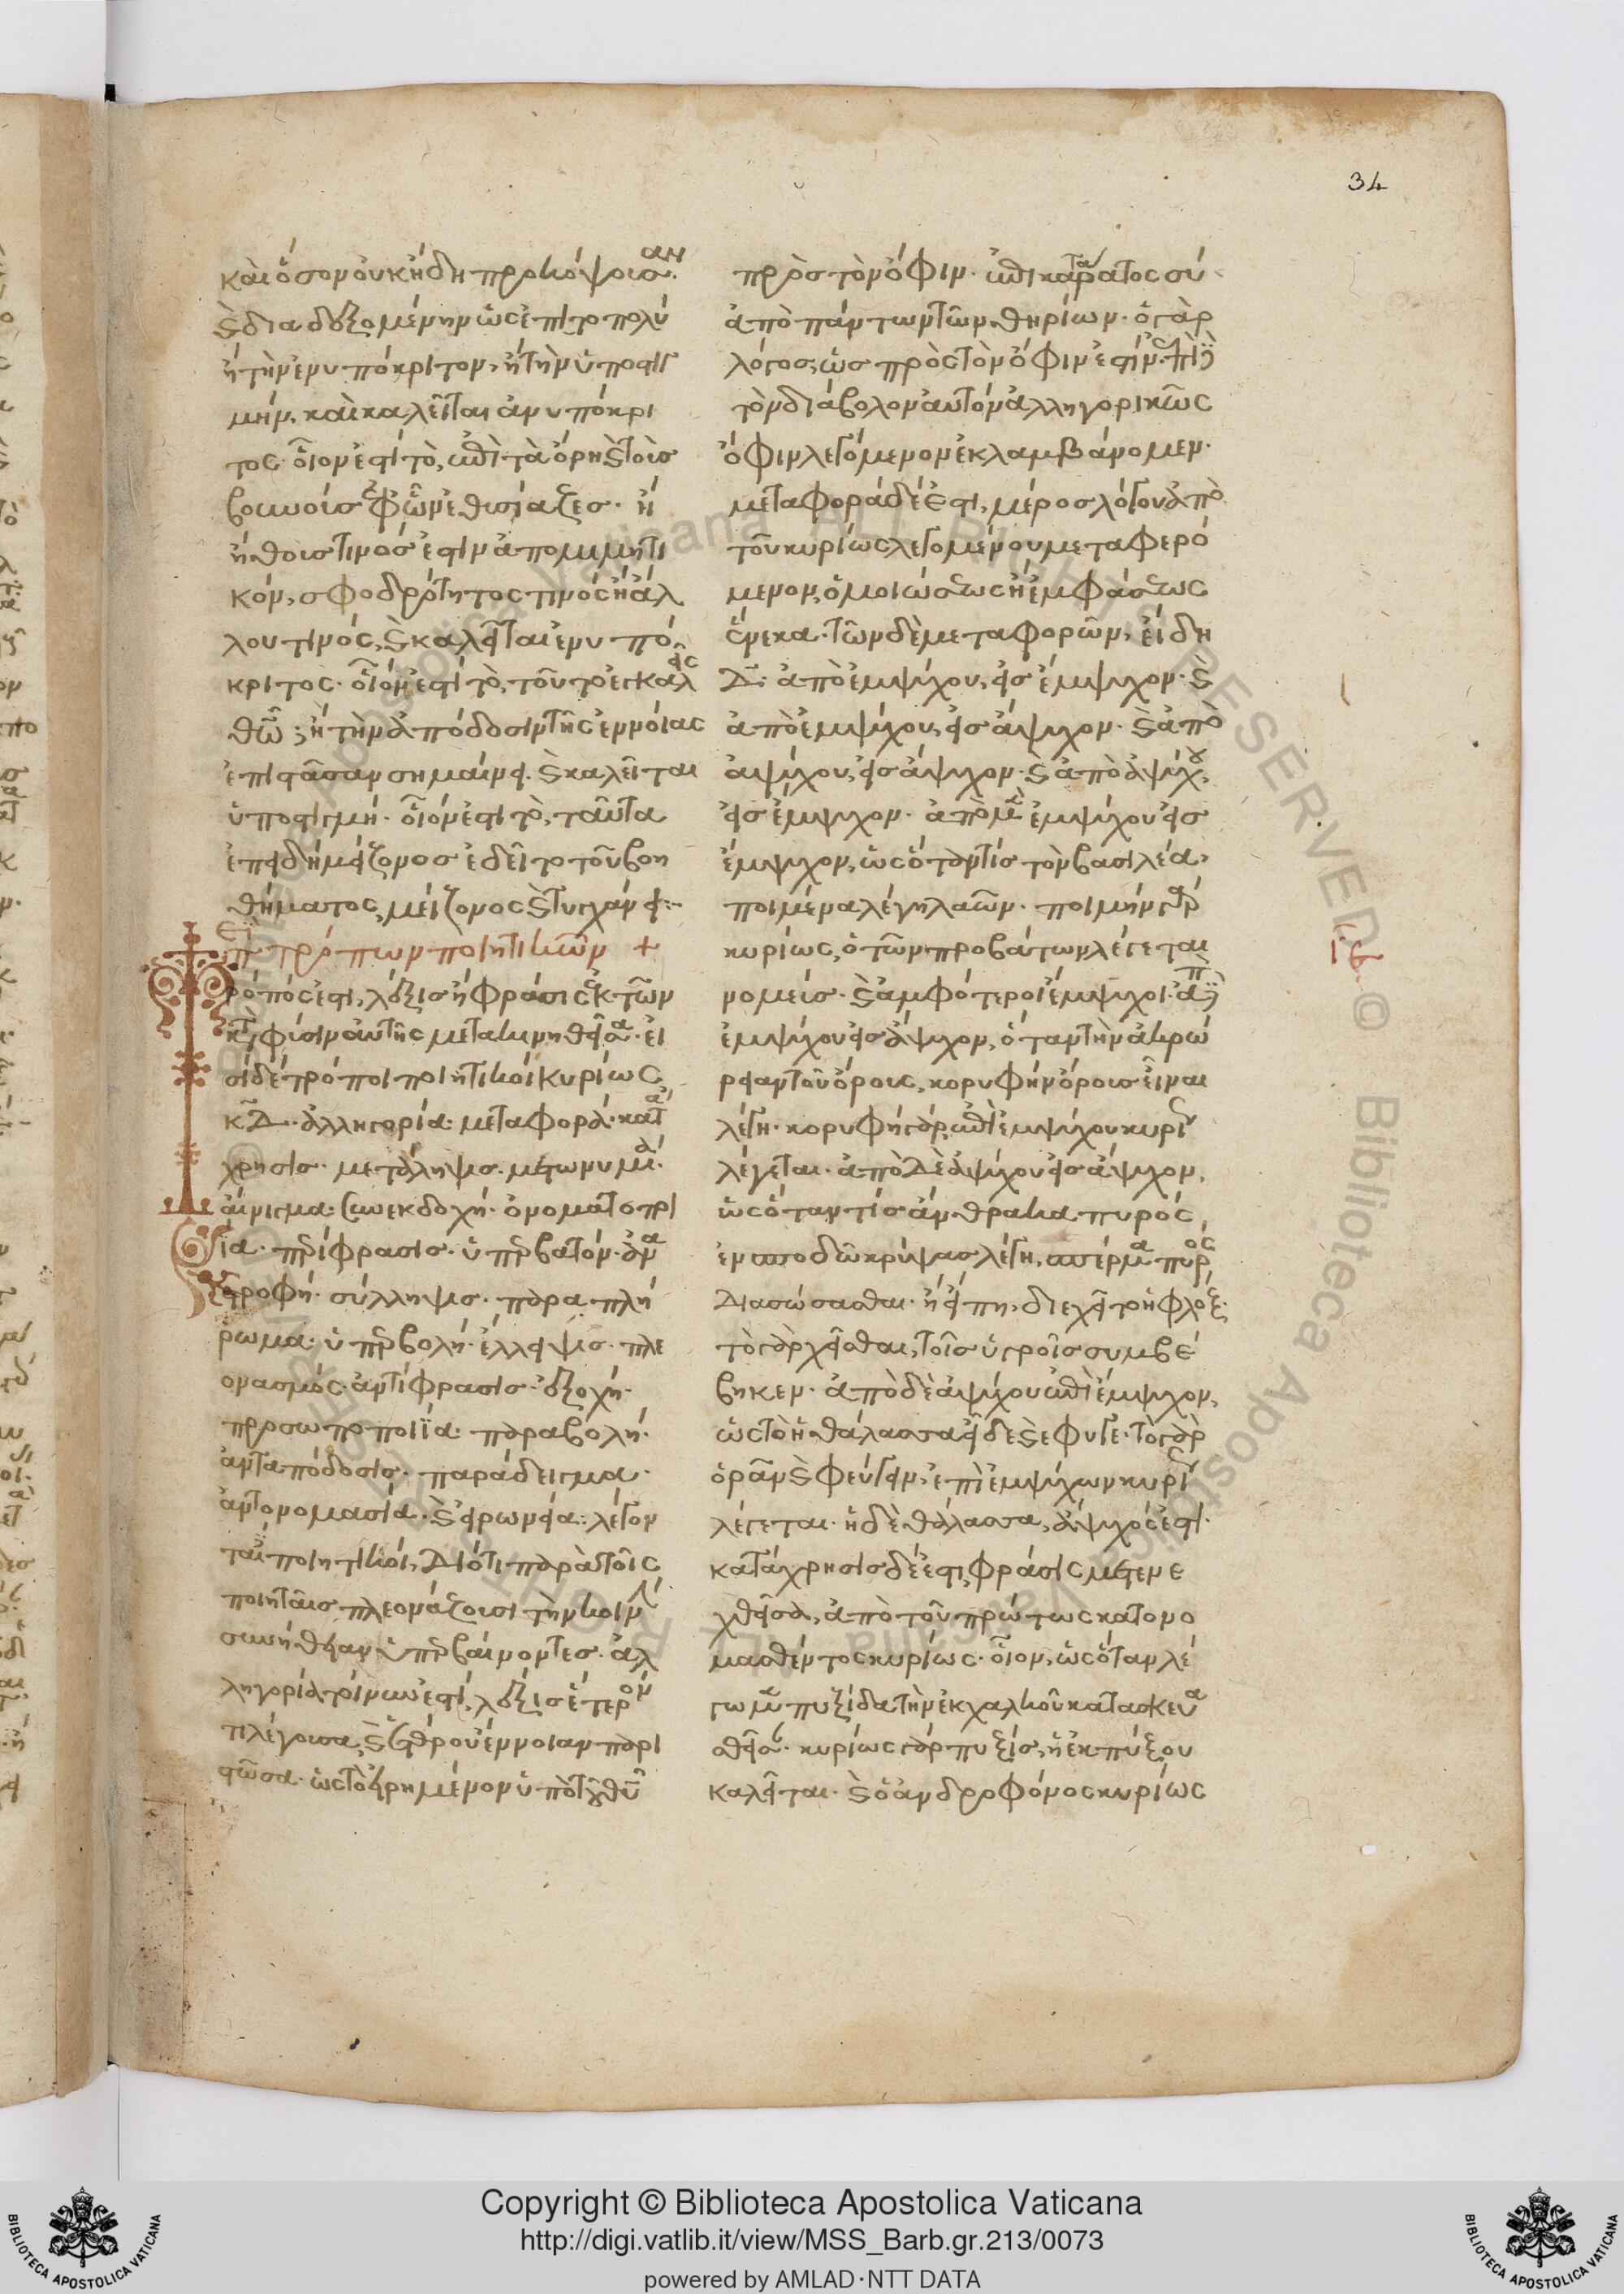 34
καὶ ὅσον οὐκ ἤδη προκόψουσαν.
καὶ διαδεξομένην ὡς ἐπὶ τὸ πολὺ
ἢ τὴν ἐνυπόκριτον, ἢ τὴν ὑποστιγ
μήν. καὶ καλεῖται ἀνυπόκρι
τος. οἷον ἐστὶ τὸ, ἐπὶ τὰ ὄρη καὶ τοῖς
βουνοῖς ἐφ' ὧν ἐθυσίαζες. ἢ
ἤθους τινός ἐστιν ἀπομιμητι
κόν, σφοδρότητος τινός ἢ ἄλ
λου τινός, καὶ καλεῖται ἐνυπό
κριτος. οἷόν ἐστι τὸ, τοῦ τρισκαλ
ἢ τὴν ἀπόδοσιν τῆς ἐννοίας
ἐπιστᾶσαν σημαίνει. καὶ καλεῖται
ὑποστιγμή. οἷόν ἐστι τὸ, ταῦτα
ἐπειδὴ μείζονος ἐδεῖτο τοῦ βοη
θήματος, μείζονος καὶ τυγχάνει:
Περὶ τρόπων ποιητικῶν +
Τρόπός ἐστι, λέξις ἢ φράσις ἐκ τῶν
κατὰ φύσιν αὐτῆς μετακινηθεῖσα. εἰ
σὶ δὲ τρόποι ποιητικοὶ κυρίως
κδ. ἀλληγορία. μεταφορά. κατά
χρησις. μετάληψις. μετωνυμία.
αἴνιγμα. συνεκδοχή. ὀνοματοποι
ία. περίφρασις. ὑπερβατόν. ἀνα
στροφή. σύλληψις. παραπλή
ρωμα. ὑπερβολή. ἔλλειψις. πλε
ονασμός. ἀντίφρασις. ἐξοχή.
προσωποποιΐα. παραβολή.
ἀνταπόδοσις. παράδειγμα.
ἀντονομασία. καὶ εἰρωνεία. λέγον
ται ποιητικοί, διότι παρὰ τοῖς
ποιηταῖς πλεονάζουσι τὴν κοινὴν
συνήθειαν ὑπερβαίνοντες. ἀλ
ληγορία τοίνυν ἐστὶ, λέξις ἕτερόν
τι λέγουσα, καὶ ἑτέρου ἔννοιαν παρι
στῶσα. ὡς τὸ εἰρημένον ὑπὸ τοῦ θεοῦ
πρὸς τὸν ὄφιν. ἐπικατάρατος σὺ
ἀπὸ πάντων τῶν θηρίων. ὁ γὰρ
λόγος, ὡς πρὸς τὸν ὄφιν ἐστίν.
τὸν διάβολον αὐτὸν ἀλληγορικῶς
ὄφιν λεγόμενον ἐκλαμβάνομεν.
μεταφορὰ δέ ἐστι, μέρος λόγου ἀπὸ
τοῦ κυρίως λεγομένου μεταφερό
μενον, ὁμοιώσεως ἢ ἐμφάσεως
ἕνεκα. τῶν δὲ μεταφορῶν, εἴδη
δ. ἀπὸ ἐμψύχου, εἰς ἔμψυχον. καὶ
ἀπὸ ἐμψύχου, εἰς ἄψυχον. καὶ ἀπὸ
ἀψύχου, εἰς ἄψυχον. καὶ ἀπὸ ἀψύχου,
εἰς ἔμψυχον. ἀπὸ μὲν ἐμψύχου εἰς
ἔμψυχον, ὡς ὅταν τις τὸν βασιλέα,
ποιμένα λέγῃ λαῶν. ποιμὴν γὰρ
κυρίως, ὁ τῶν προβάτων λέγεται
νομεύς. καὶ ἀμφότεροι ἔμψυχοι. ἀπὸ
ἐμψύχου εἰς ἄψυχον, ὅταν τὴν ἀκρώ
ρειαν τοῦ ὄρους, κορυφὴν ὄρους εἶναι
λέγῃ. κορυφὴ γὰρ, ἐπὶ ἐμψύχου κυρίως
λέγεται. ἀπὸ δὲ ἀψύχου εἰς ἄψυχον,
ὡς ὅταν τις ἀνθρακιὰ πυρός
ἐν σποδῷ κρύψας λέγῃ, σπέρμα πυρός
διασώσασθαι. ἢ εἴπῃ, διεχεῖτο ἡ φλόξ.
τὸ γὰρ χεῖσθαι, τοῖς ὑγροῖς συμβέ
βηκεν. ἀπὸ δὲ ἀψύχου ἐπὶ ἔμψυχον,
ὡς τὸ ἡ θάλασσα εἶδε καὶ ἔφυγε. τὸ γὰρ
ὁρᾶν καὶ φεύγειν, ἐπὶ ἐμψύχων κυρίως
λέγεται. ἡ δὲ θάλασσα, ἄψυχός ἐστι.
κατάχρησις δέ ἐστι, φράσις μετενε
χθεῖσα, ἀπὸ τοῦ πρώτως κατονο
μασθέντος κυρίως. οἷον, ὡς ὅταν λέ
γωμεν πυξίδα τὴν ἐκ χαλκοῦ κατασκευα
σθεῖσαν. κυρίως γὰρ πυξίς, ἡ ἐκ πύξου
καλεῖται. καὶ ὁ ἀνδροφόνος κυρίως
Copyright © Biblioteca Apostolica Vaticana
http://digi.vatlib.it/view/MSS_Barb.gr.213/0073
powered by AMLAD · NTT DATA
BIBLIOTECA APOSTOLICA VATICANA
BIBLIOTECA APOSTOLICA VATICANA